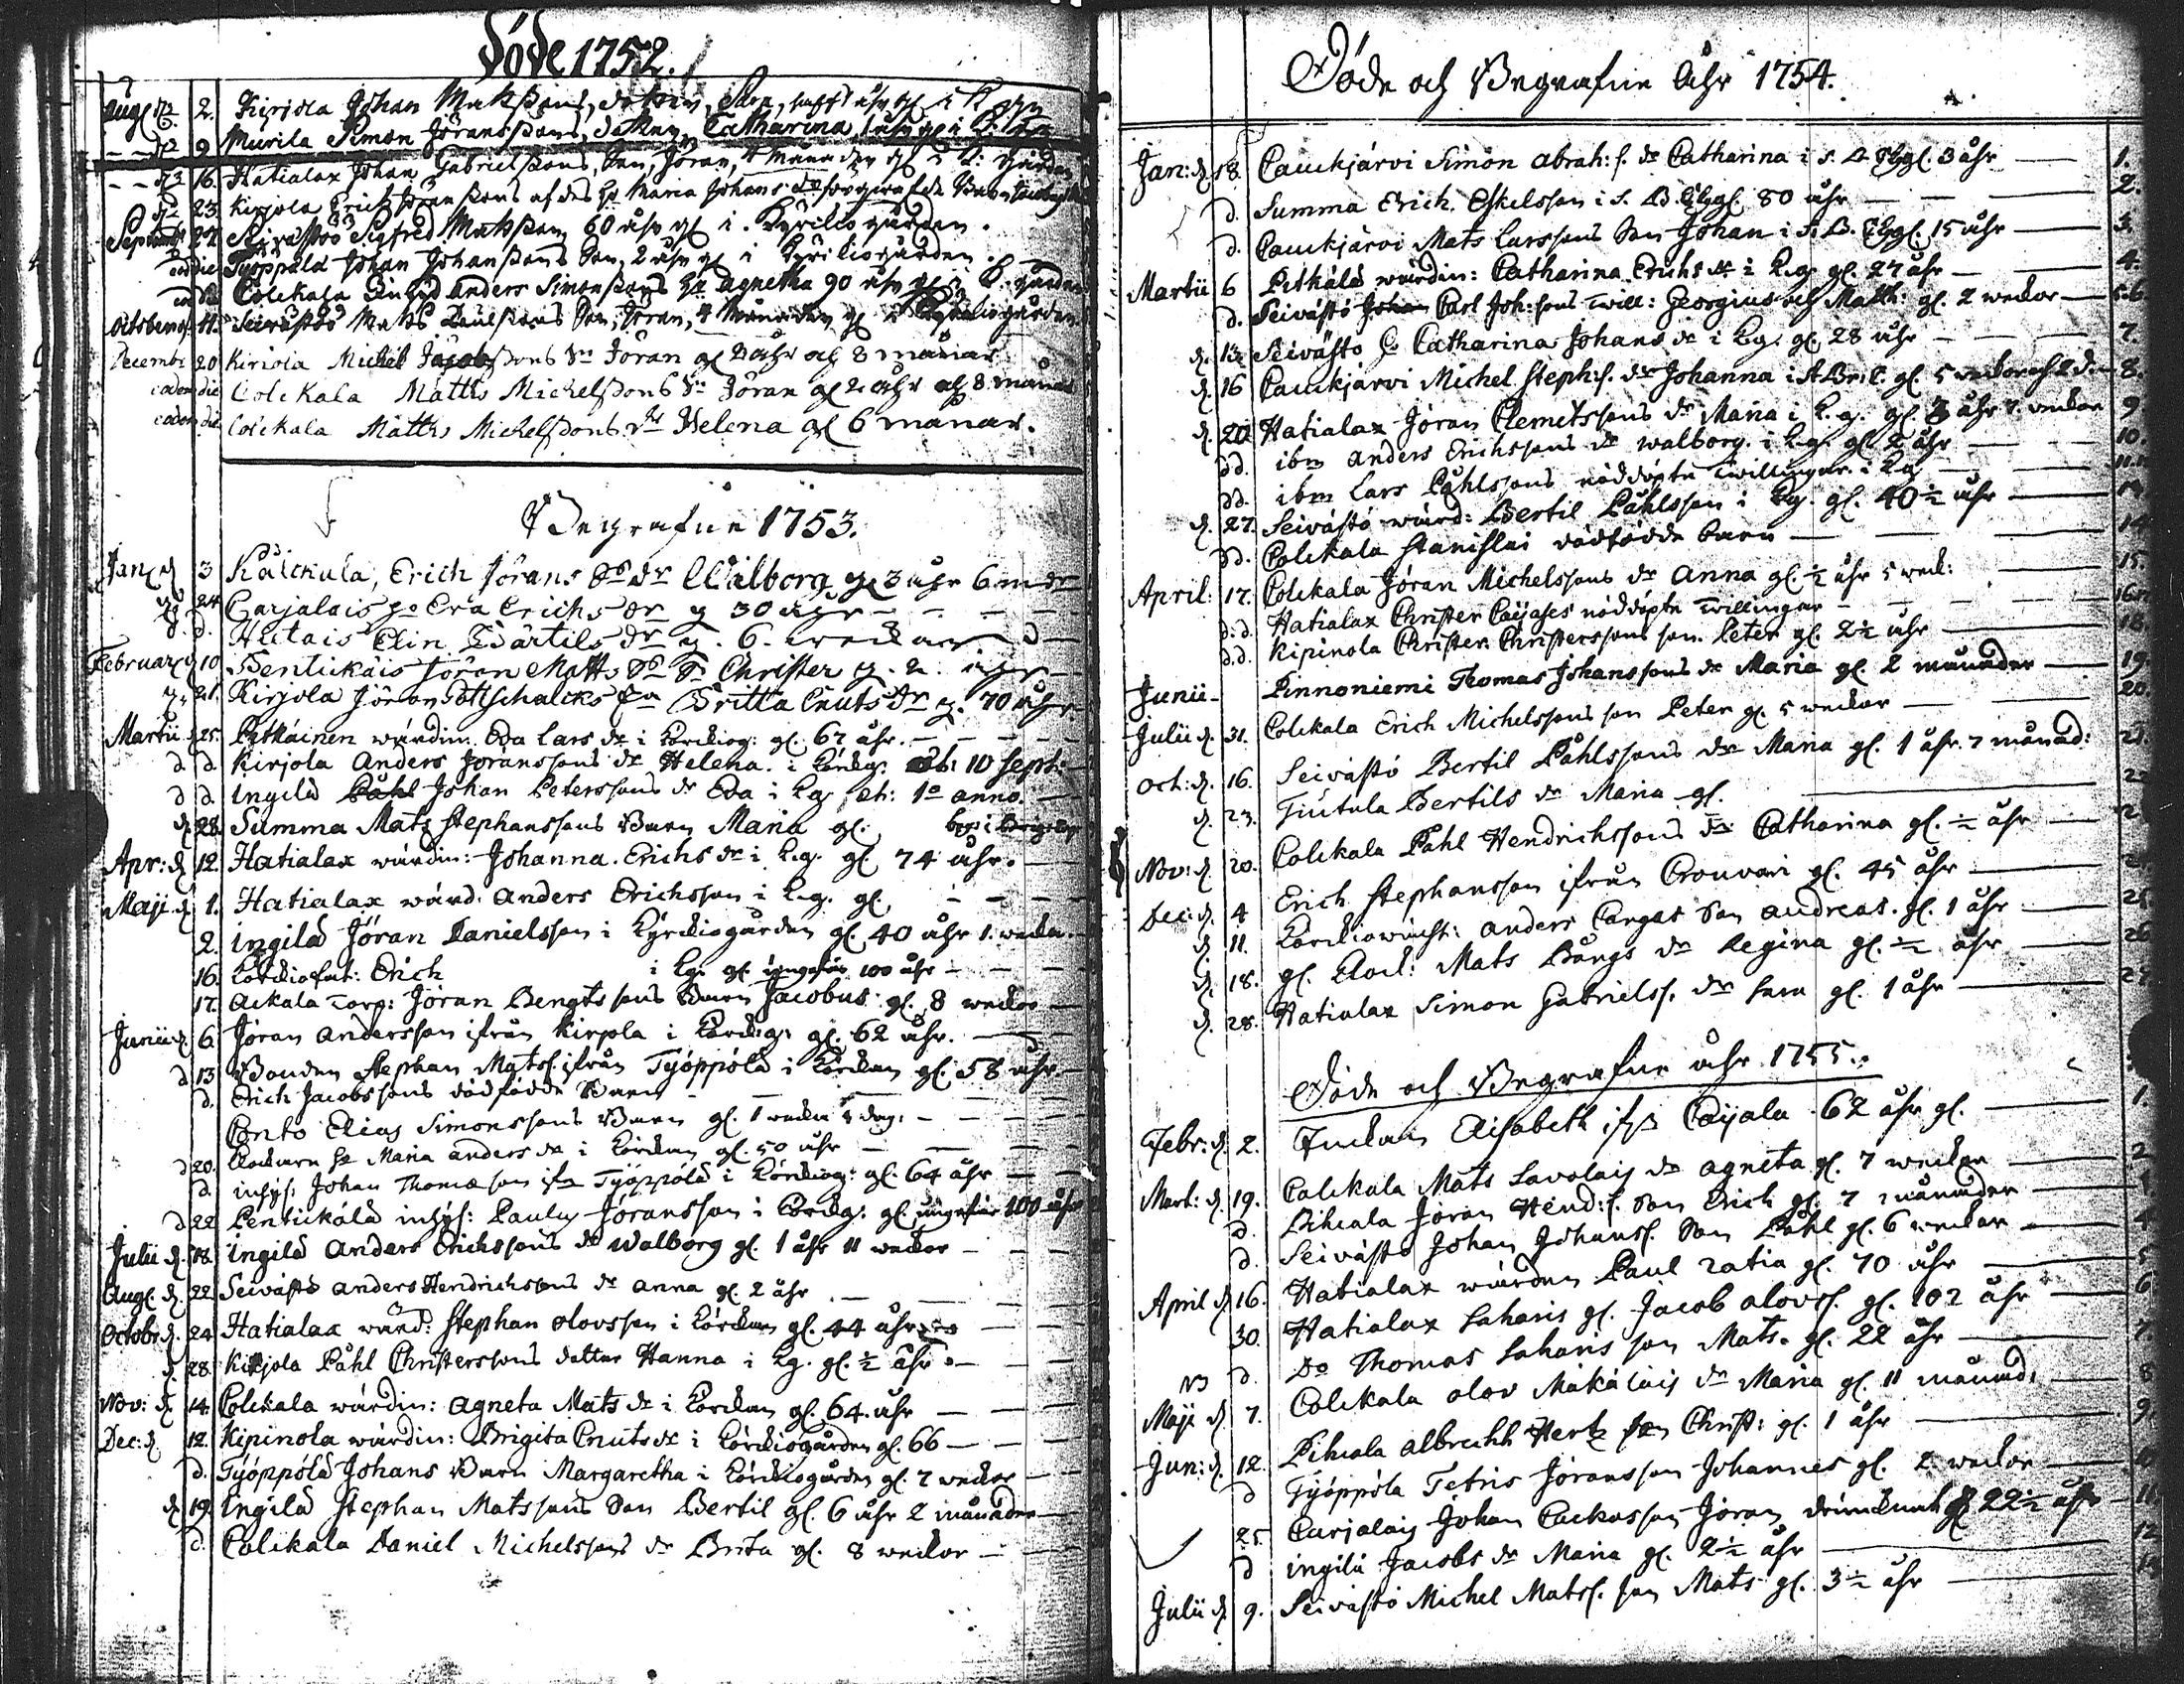 Döde 1752.
Aug. d 2. Kirjola Johan Matssons, dotter, Sara, half åhr gl i K. g
d 9 Murila Simon Jöranssons, dotter, Catharina, 1 åhr gl i K.
d 16. Hatialax Johan Gabrielssons, Son, Jöran, 4 månader gl i K: gården
d 23. Kirjola Erich Jöranssons Maria Johans dr
Septemb. 27. Seivästö Sigfred Matsson 60 åhr gl i Kyrkiogården.
eodie Työppölä Johan Johanssons Son, 2 åhr gl i Kyrkiogården.
Colckala Anders Simonssons Agnetha 90 åhr gl i K. gården
Octob. 11. Seivästöö Mats Paulssons Son, Jöran, 4 Månader gl i Kyrkiogården
Decembr 20 Kiriola Michel Jacobssons Sn Jöran gl 2 åhr och 8 månar
eadem die Colckala Matths Michelssons Sn Jöran gl 2 åhr och 8 månar
eadem die Colckala Matths Michelssons dr Helena gl 6 månar.
Begrafne 1753.
Jan d 3 Kälckula, Erich Jörans Ss dr Walborg gl 3 åhr 6 m
24 Carjalais Eva Erichs dr g 30 åhr
d. d. Hutais Elin Bärtils dr g. 6. weckar
Februar d 10 Bentickäis Jöran Matts Ss Sn Christer g. 2. åhr
d 21. Kirjola Jöran Gottschalcks Britta Cnuts dr g. 70 åhr
Martii d 25. Pitkäinen wärdin Eva Lars dr i Körckiog: gl. 67 åhr.
d d Kirjola Anders Jöranssons dr Helena i Körckg: ob: 10 Sept:
d d Ingilä Påhl Johan Peterssons dr Eva i kg æt: 1o anno.
d 28. Summa Mats Stephanssons Barn Maria gl.
Apr: d 12. Hatialax wärdin: Johanna Erichs dr i k.g. gl 74 åhr.
Maji d 1. Hatialax wärd. Anders Erichsson i k.g. gl.
2. Ingilä Jöran Danielsson i Kyrckiogården gl. 40 åhr 1. weckor
16. Erich i kg: gl. ungefär 100 åhr
17. Ackala Torp: Jöran Bengtssons Barn Jacobus gl. 8 weckor
Junii d 6 Jöran Andersson ifrån Kirjola i Körckg: gl. 62 åhr.
d 13 Bonden Stephan Matss. ifrån Työppölä i Körckan gl. 58 åhr
d. Erich Jacobssons dödfödde Barn
Conto Elias Simonssons Barn gl. 1 wecka dag:
d 20. Klockaren Maria Anders dr i Körckan gl. 50 åhr
d. inhys: Johan Thomæson Työppölä i Körckiog: gl. 64 åhr
d 22 Pentickälä inhys: Paulus Jöransson i Körckg: gl. ungefär 100 åhr
Julii d. 18. Ingilä Anders Erichssons dr Walborg gl. 1 åhr 11 weckor
Aug. d. 22. Seivästö Anders Hendrichssons dr Anna gl. 2 åhr
Octobr d. 24 Hatialax wärd: Stephan Olovsson i Körckan gl. 44 åhr
d. 28. Kirjola Påhl Christerssons dotter Hanna i kg. gl. ½ åhr
Nov: d. 14. Colckala wärdin: Agneta Mats dr i Körckan gl. 64 åhr
Dec: d. 12. Kipinola wärdin: Brigita Cnuts dr i Körckiogården gl. 66
d. Työppölä Johans Barn Margaretha i Körckiogården gl. 7 weckor
d 19 Ingilä Stephan Matssons Son Bertil gl. 6 åhr 2 månader
d. Colckala Daniel Michelssons dr Brita gl. 8 weckor
Döde och Begrafne Åhr 1754.
Jan: d. 18. Cauckjärvi Simon Abrah: s. dr Catharina i S. B. gl. 3 åhr 1.
d. Summa Erich Eskelsson i S. B. gl. 80 åhr 2.
d. Cauckjärvi Mats Larssons Son Johan i S. B. gl. 15 åhr 3.
Martii 6 Pitkälä wärdin: Catharina Erichs dr i k.g. gl. 27 åhr 4.
d. Seivästö Johan Carl Joh:sons Twill: Georgius och Matth: gl. 2 weckor 5.6.
d. 13. Seivästo Catharina Johans dr i kg. gl. 28 åhr 7.
d. 16 Cauckjärvi Michel Steph:s. dr Johanna gl. 5 weckor och 2 d. 8.
d. 20 Hatialax Jöran Clemetssons dr Maria i k.g. gl. 3 åhr 7. weckor 9
dd. ibm Anders Erichssons dr Walborg i k.g. gl. 2 åhr 10.
dd. ibm Lars Påhlssons nöddöpte Twillingar i kg 11.12
d. 27. Seivästö wärd: Bertil Påhlsson i kg. gl. 40½ åhr 13.
dd. Colckala Stanislai dödfödde barn 14
April: 17. Colckala Jöran Michelssons dr Anna gl. ½ åhr 5 weck: 15.
d:d. Hatialax Christer Cajases nöddöpte Twillingar 16.17
d.d. Kipinola Christer Christerssons son Peter gl. 2½ åhr 18.
Junii Pinnoniemi Thomas Johanssons dr Maria gl. 2 månader 19.
Julii d. 31. Colckala Erich Michelssons son Peter gl. 5 weckor 20.
Oct: d. 16. Seivästö Bertil Påhlssons dr Maria gl. 1 åhr 7 månad: 21.
d. 23. Tiutula Bertils dr Maria gl. 22
Nov: d. 20. Colckala Påhl Hendrichssons dr Catharina gl. ½ åhr
Dec: d. 4 Erich Stephansson ifrån Crouvari gl. 45 åhr 24
d. 11. Anders Cargas Son Andreas. gl. 1 åhr 25
d. 18. gl. Klock: Mats Bångs dr Regina gl. ½ åhr 26
d. 28. Hatialax Simon Gabrielss. dr Sara gl. 1 åhr 27
Döde och Begrafne åhr 1755.
Febr: d. 2. Enckan Elisabeth ifrn Caijala 62 åhr gl. 1.
Mart: d. 19. Colckala Mats Savolais dr Agneta gl. 7 weckor 2
d. Pihlcala Jöran Hend:s. Son Erich gl. 7 månader
d. Seivästö Johan Johanss. Son Påhl gl. 6 weckor 4
April d 16. Hatialax wärden Paul Ratia gl. 70 åhr 5
30. Hatialax Saharis gl. Jacob Olovss. gl. 102 åhr 6
NB d. Do Thomas Saharis son Mats. gl. 22 åhr 7.
Maji d. 7. Colckala Olov Mäkäläis dr Maria gl. 11 månad: 8
Jun: d. 12. Pihlcala Albrecht Hertz son Christ: gl. 1 åhr 9.
d Työppölä Tetris Jöransson Johannes gl. 2 weckor 10
25. Carjalais Johan Cackosson Jöran drunknat gl 22½ åhr 11
d Ingilä Jacobs dr Maria gl. 2½ åhr 12
Julii d. 9. Seivästö Michel Matss. son Mats gl. 3½ åhr